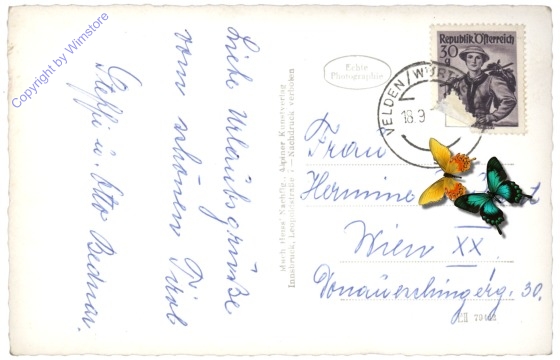 Copyright by Wimstore
Liebe Urlaubsgrüße
vom schönen Tirol
Steffi u. Otto Bednar.
Echte
Photographie
Innsbruck, Leopoldstraße Nachdruck verboten
Republik Österreich
30 g
VELDEN
18.9
Frau
Hermine
Wien XX.
Donaueschingerg. 30.